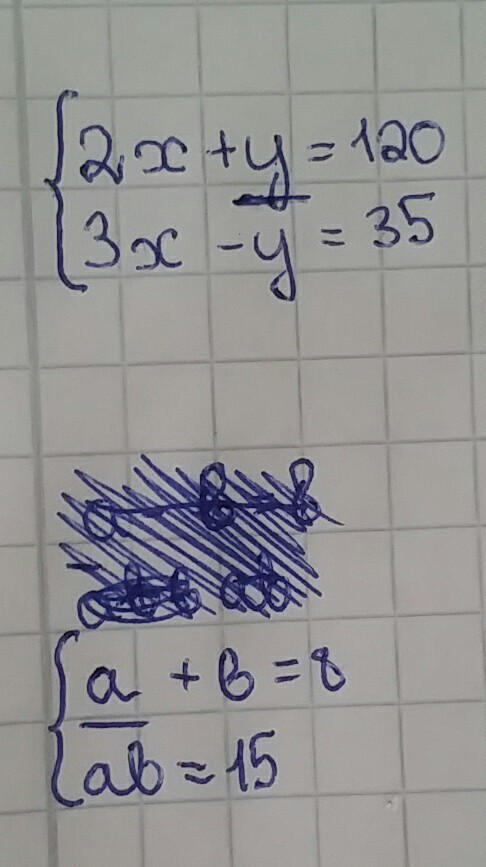 2x + y = 120
3x - y = 35
a + b = 8
ab = 15